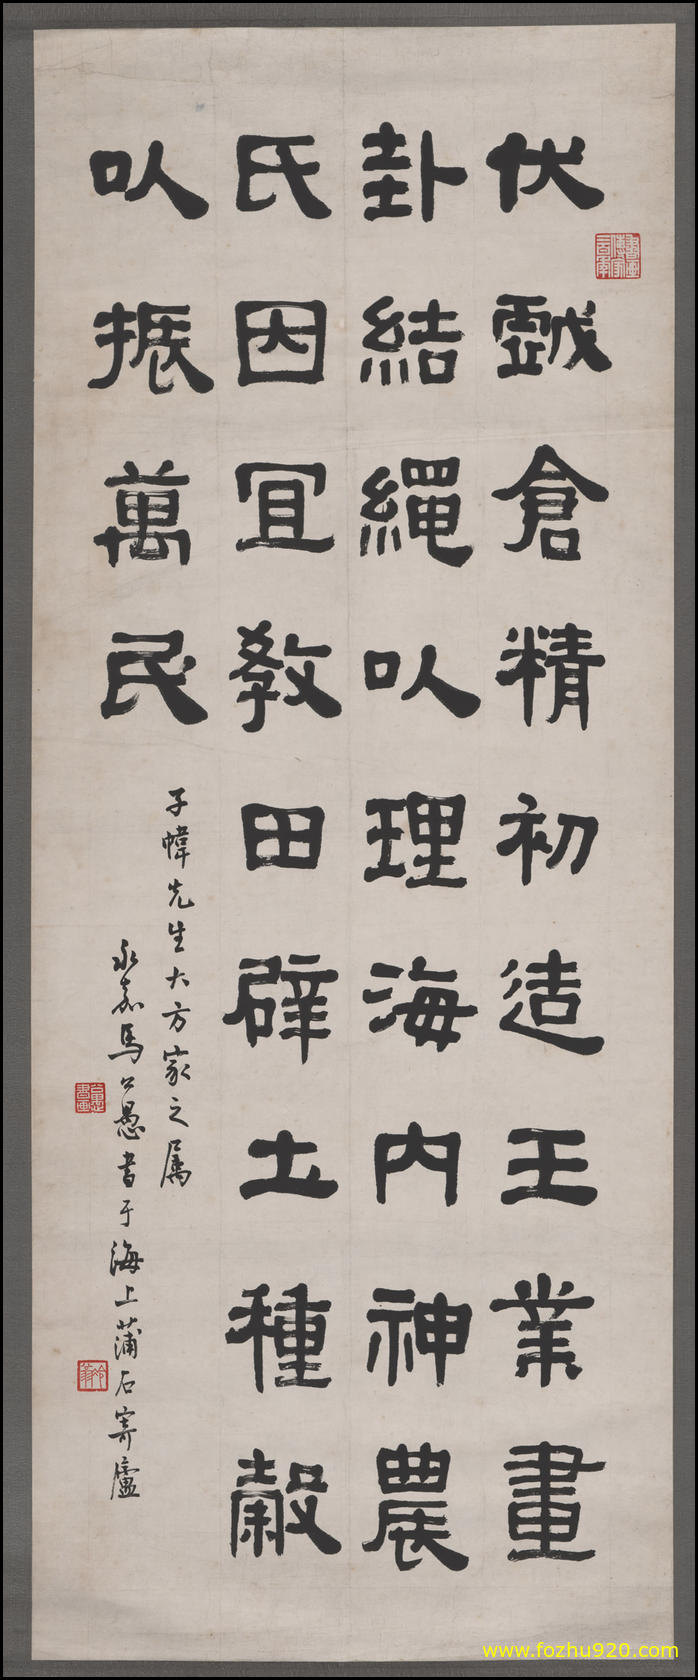 伏戲倉精初造王業畫
卦結繩以理海內神農
氏因宜教田辟土種穀
以振萬民
子幃先生大方家之属
永嘉馬公愚書于海上蒲石寄廬
www.fozhu920.com